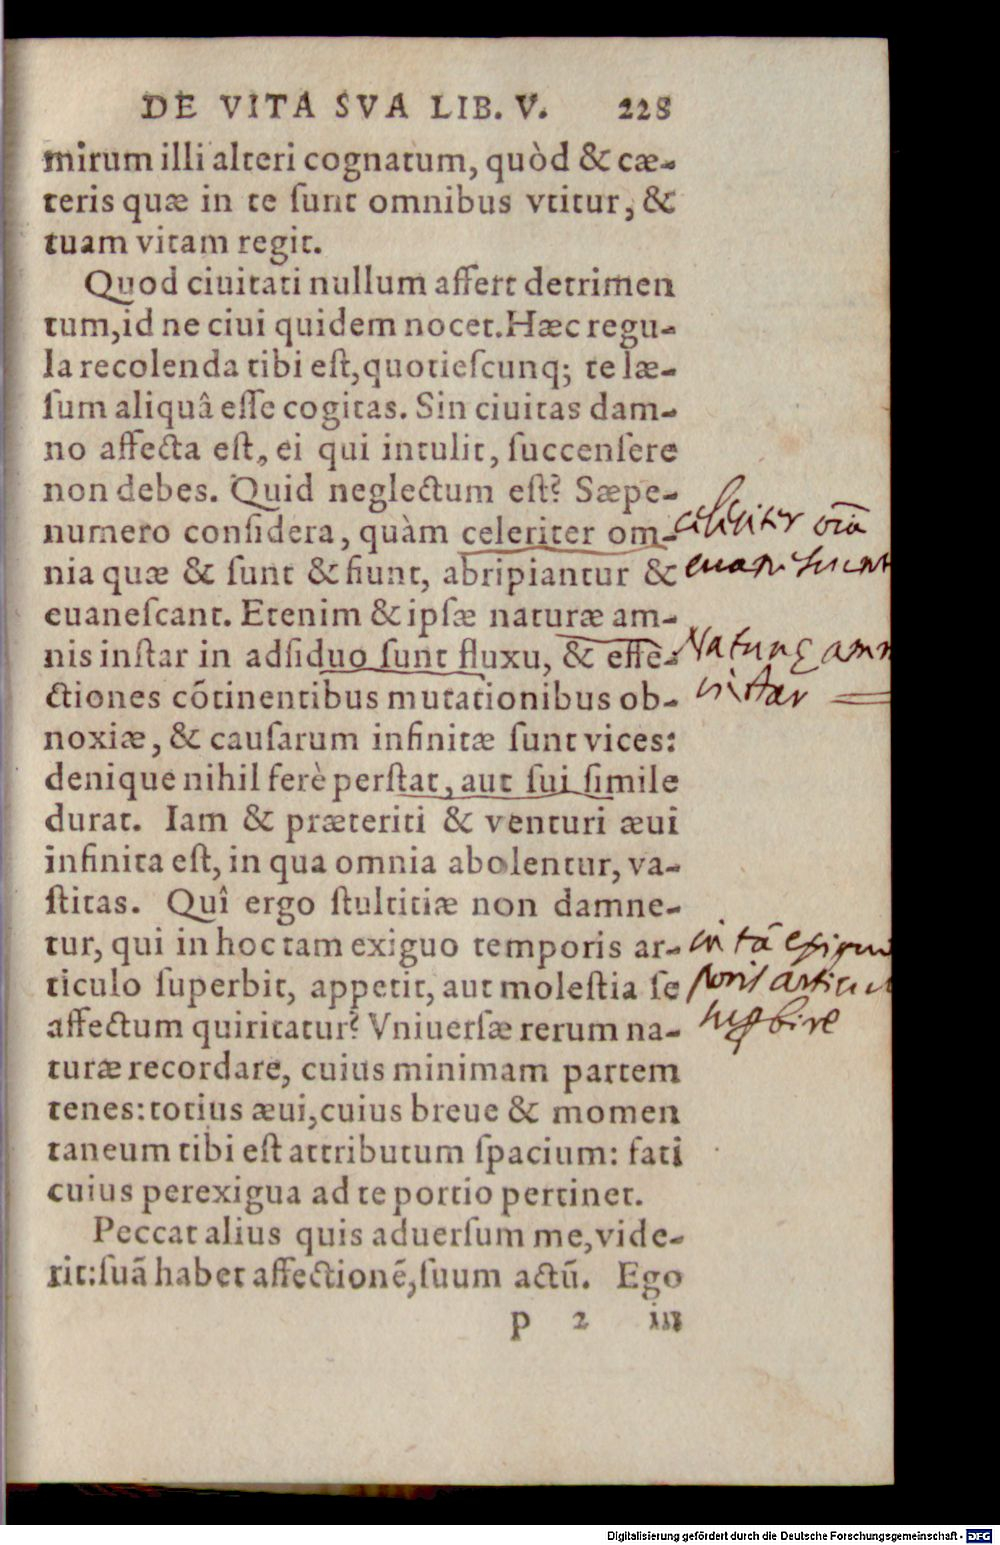 DE VITA SVA LIB. V. 228
mirum illi alteri cognatum, quòd & cæ-
teris quæ in te ſunt omnibus vtitur, &
tuam vitam regit.
Quod ciuitati nullum affert detrimen
tum, id ne ciui quidem nocet. Hæc regu-
la recolenda tibi eſt, quotieſcunq; te læ-
ſum aliquâ eſſe cogitas. Sin ciuitas dam-
no affecta eſt, ei qui intulit, ſuccenſere
non debes. Quid neglectum eſt? Sæpe-
numero conſidera, quàm celeriter om-
celeriter oīa
nia quæ & ſunt & fiunt, abripiantur &
euaneſcunt
euaneſcant. Etenim & ipſæ naturæ am-
nis inſtar in adſiduo ſunt fluxu, & effe-
Naturę amn
ctiones cōtinentibus mutationibus ob-
inſtar
noxiæ, & cauſarum infinitæ ſunt vices:
denique nihil ferè perſtat, aut ſui ſimile
durat. Iam & præteriti & venturi æui
infinita eſt, in qua omnia abolentur, va-
ſtitas. Quî ergo ſtultitiæ non damne-
tur, qui in hoc tam exiguo temporis ar-
in tā exiguo
ticulo ſuperbit, appetit, aut moleſtia ſe
poris articul
affectum quiritatur? Vniuerſæ rerum na-
ſuꝑbire
turæ recordare, cuius minimam partem
tenes: totius æui, cuius breue & momen
taneum tibi eſt attributum ſpacium: fati
cuius perexigua ad te portio pertinet.
Peccat alius quis aduerſum me, vide-
rit: ſuā habet affectionē, ſuum actū. Ego
p 2 in
Digitalisierung gefördert durch die Deutsche Forschungsgemeinschaft - DFG